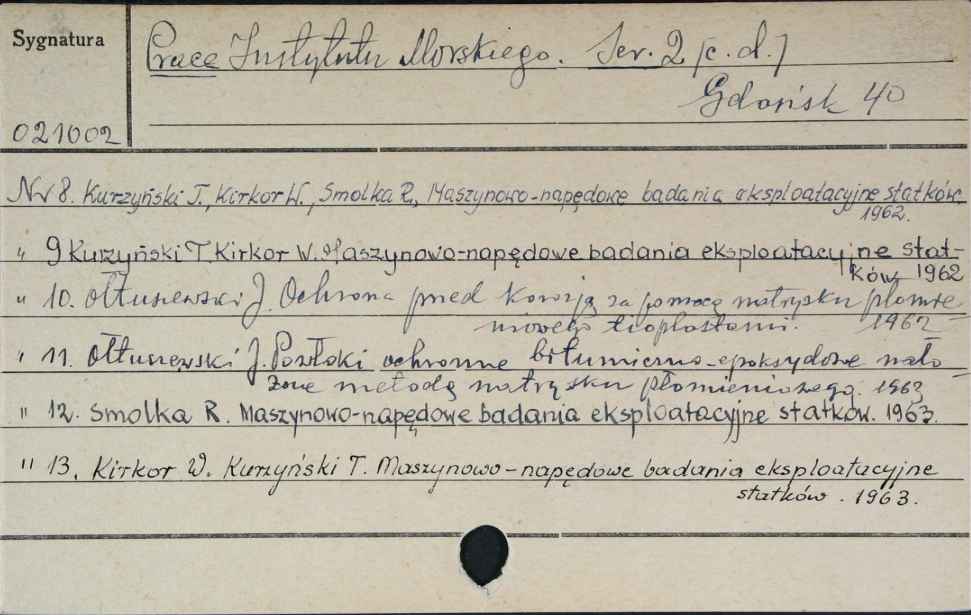 Sygnatura
Prace Instytutu Morskiego. Ser. 2 [c. d.]
Gdańsk 40
021002
Nr 8. Kurzyński T., Kirkor W., Smolka R., Maszynowo-napędowe badania eksploatacyjne statków
1962.
" 9 Kurzyński T. Kirkor W. Maszynowo-napędowe badania eksploatacyjne stat-
ków 1962
" 10. Ołtuszewski J. Ochrona przed korozją za pomocą natrysku płomie
niowego tioplastami. 1962
" 11. Ołtuszewski J. Powłoki ochronne bitumiczno-epoksydowe nało
żone metodą natrysku płomieniowego. 1963
" 12. Smolka R. Maszynowo-napędowe badania eksploatacyjne statków. 1963.
" 13. Kirkor W. Kurzyński T. Maszynowo-napędowe badania eksploatacyjne
statków. 1963.